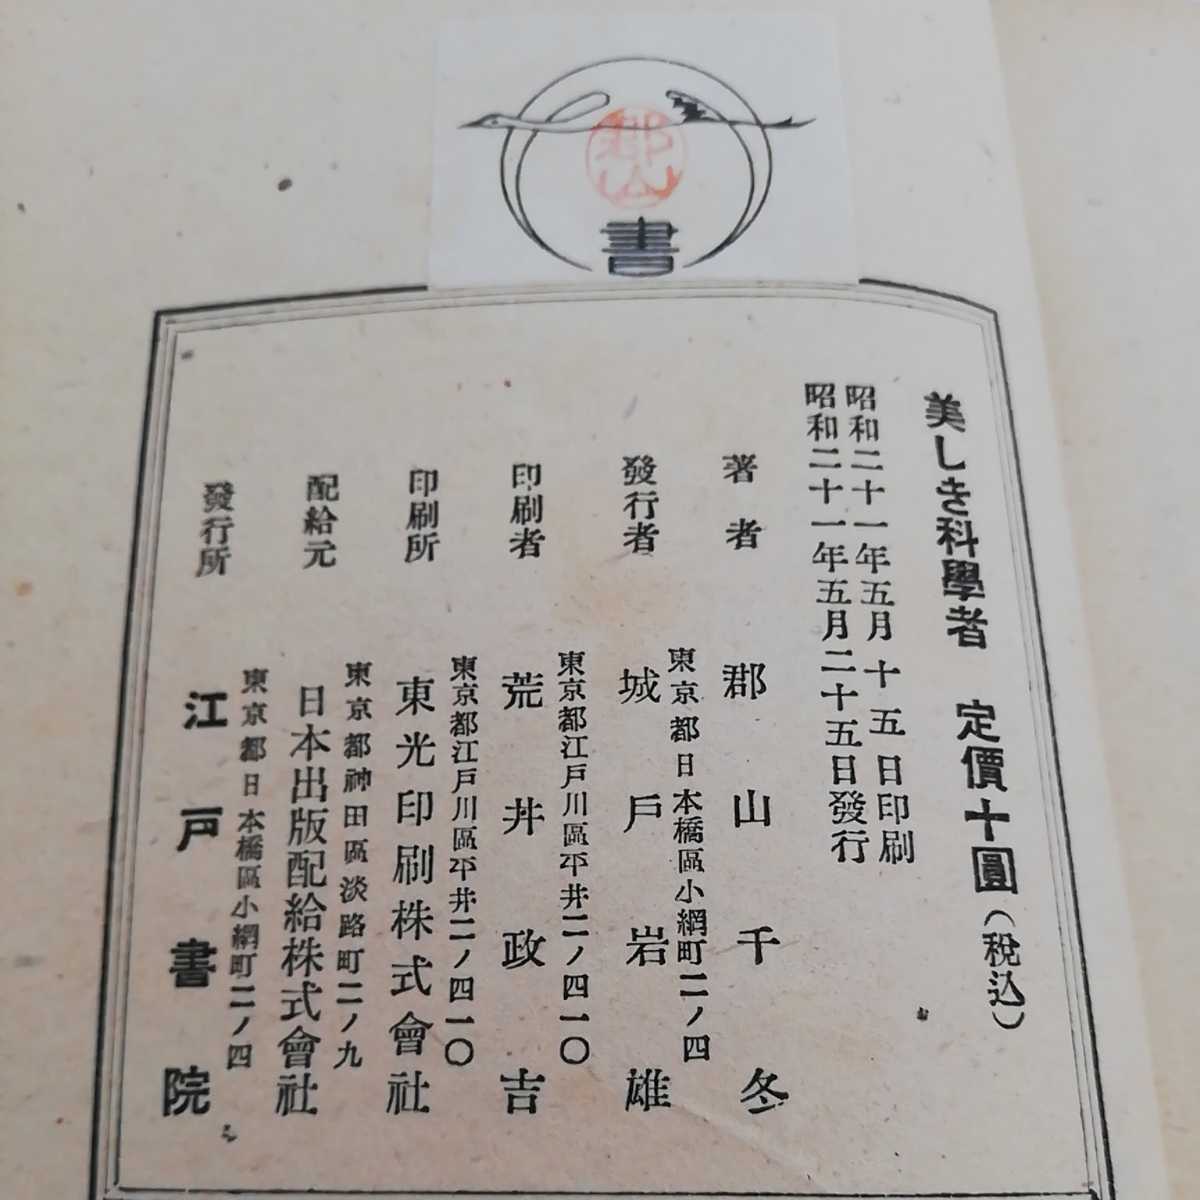 郡山
書
美しき科學者 定價十圓(税込)
昭和二十一年五月十五日印刷
昭和二十一年五月二十五日發行
著者 郡山千冬
東京都日本橋區小網町二ノ四
發行者 城戶岩雄
東京都江戶川區平井二ノ四一〇
印刷者 荒井政吉
東京都江戶川區平井二ノ四一〇
印刷所 東光印刷株式會社
東京都神田區淡路町二ノ九
配給元 日本出版配給株式會社
東京都日本橋區小網町二ノ四
發行所 江戶書院